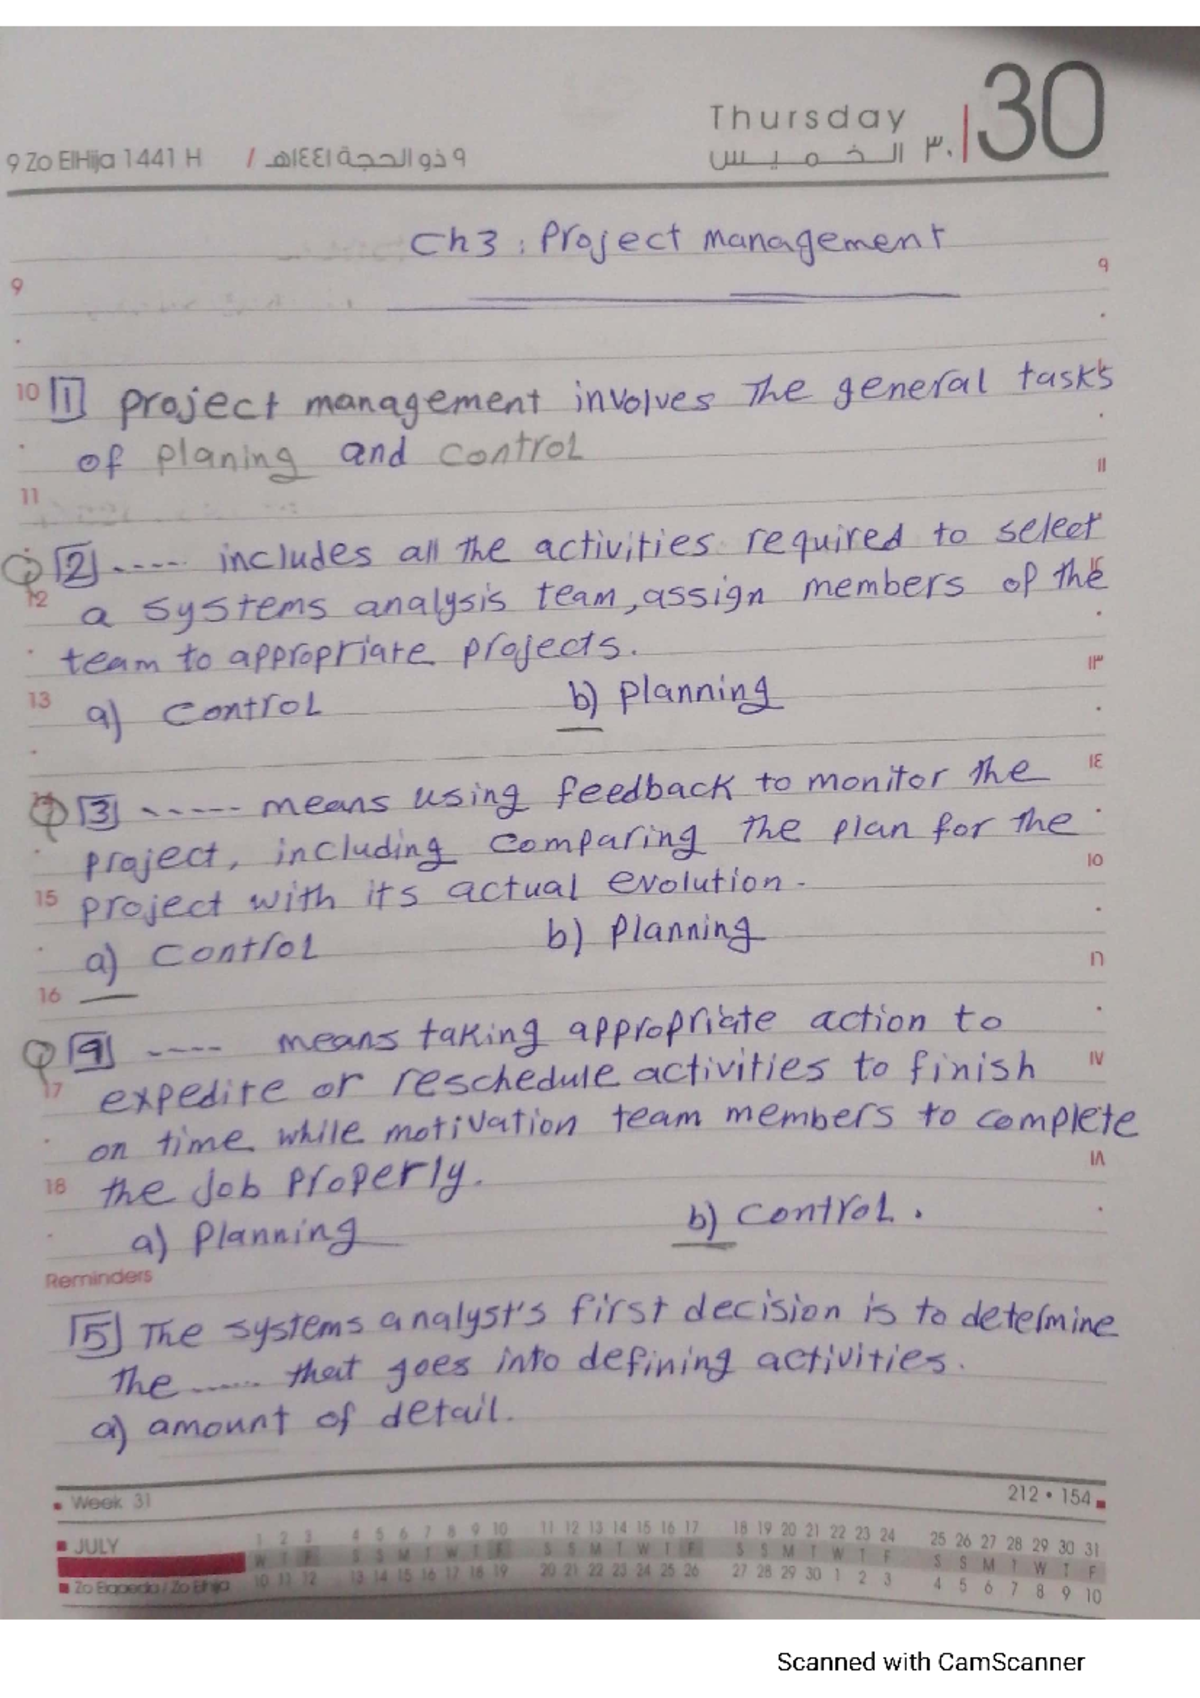 Thursday
30
٣٠ الخميس
9 Zo ElHija 1441 H / ٩ ذو الحجة ١٤٤١هـ
Ch3: Project management
9 ٩
10 1 project management involves The general tasks
of planing and control
11 ١١
2 ..... includes all the activities required to select
12 ١٢ a systems analysis team, assign members of the
team to appropriate projects.
13 ١٣
a) Control b) Planning
١٤
3 ..... means using feedback to monitor the
project, including comparing the plan for the
15 ١٥ project with its actual evolution.
a) Control b) Planning
16 ١٦
4 .... means taking appropriate action to
17 ١٧ expedite or reschedule activities to finish
on time while motivation team members to complete
18 ١٨ the job properly.
a) Planning b) Control.
Reminders
5 The systems analyst's first decision is to determine
the ...... that goes into defining activities.
a) amount of detail.
Week 31 212 • 154
JULY 1 2 3 4 5 6 7 8 9 10 11 12 13 14 15 16 17 18 19 20 21 22 23 24 25 26 27 28 29 30 31
W T F S S M T W T F S S M T W T F S S M T W T F S S M T W T F
Zo Elqaeda / Zo Elhija 10 11 12 13 14 15 16 17 18 19 20 21 22 23 24 25 26 27 28 29 30 1 2 3 4 5 6 7 8 9 10
Scanned with CamScanner